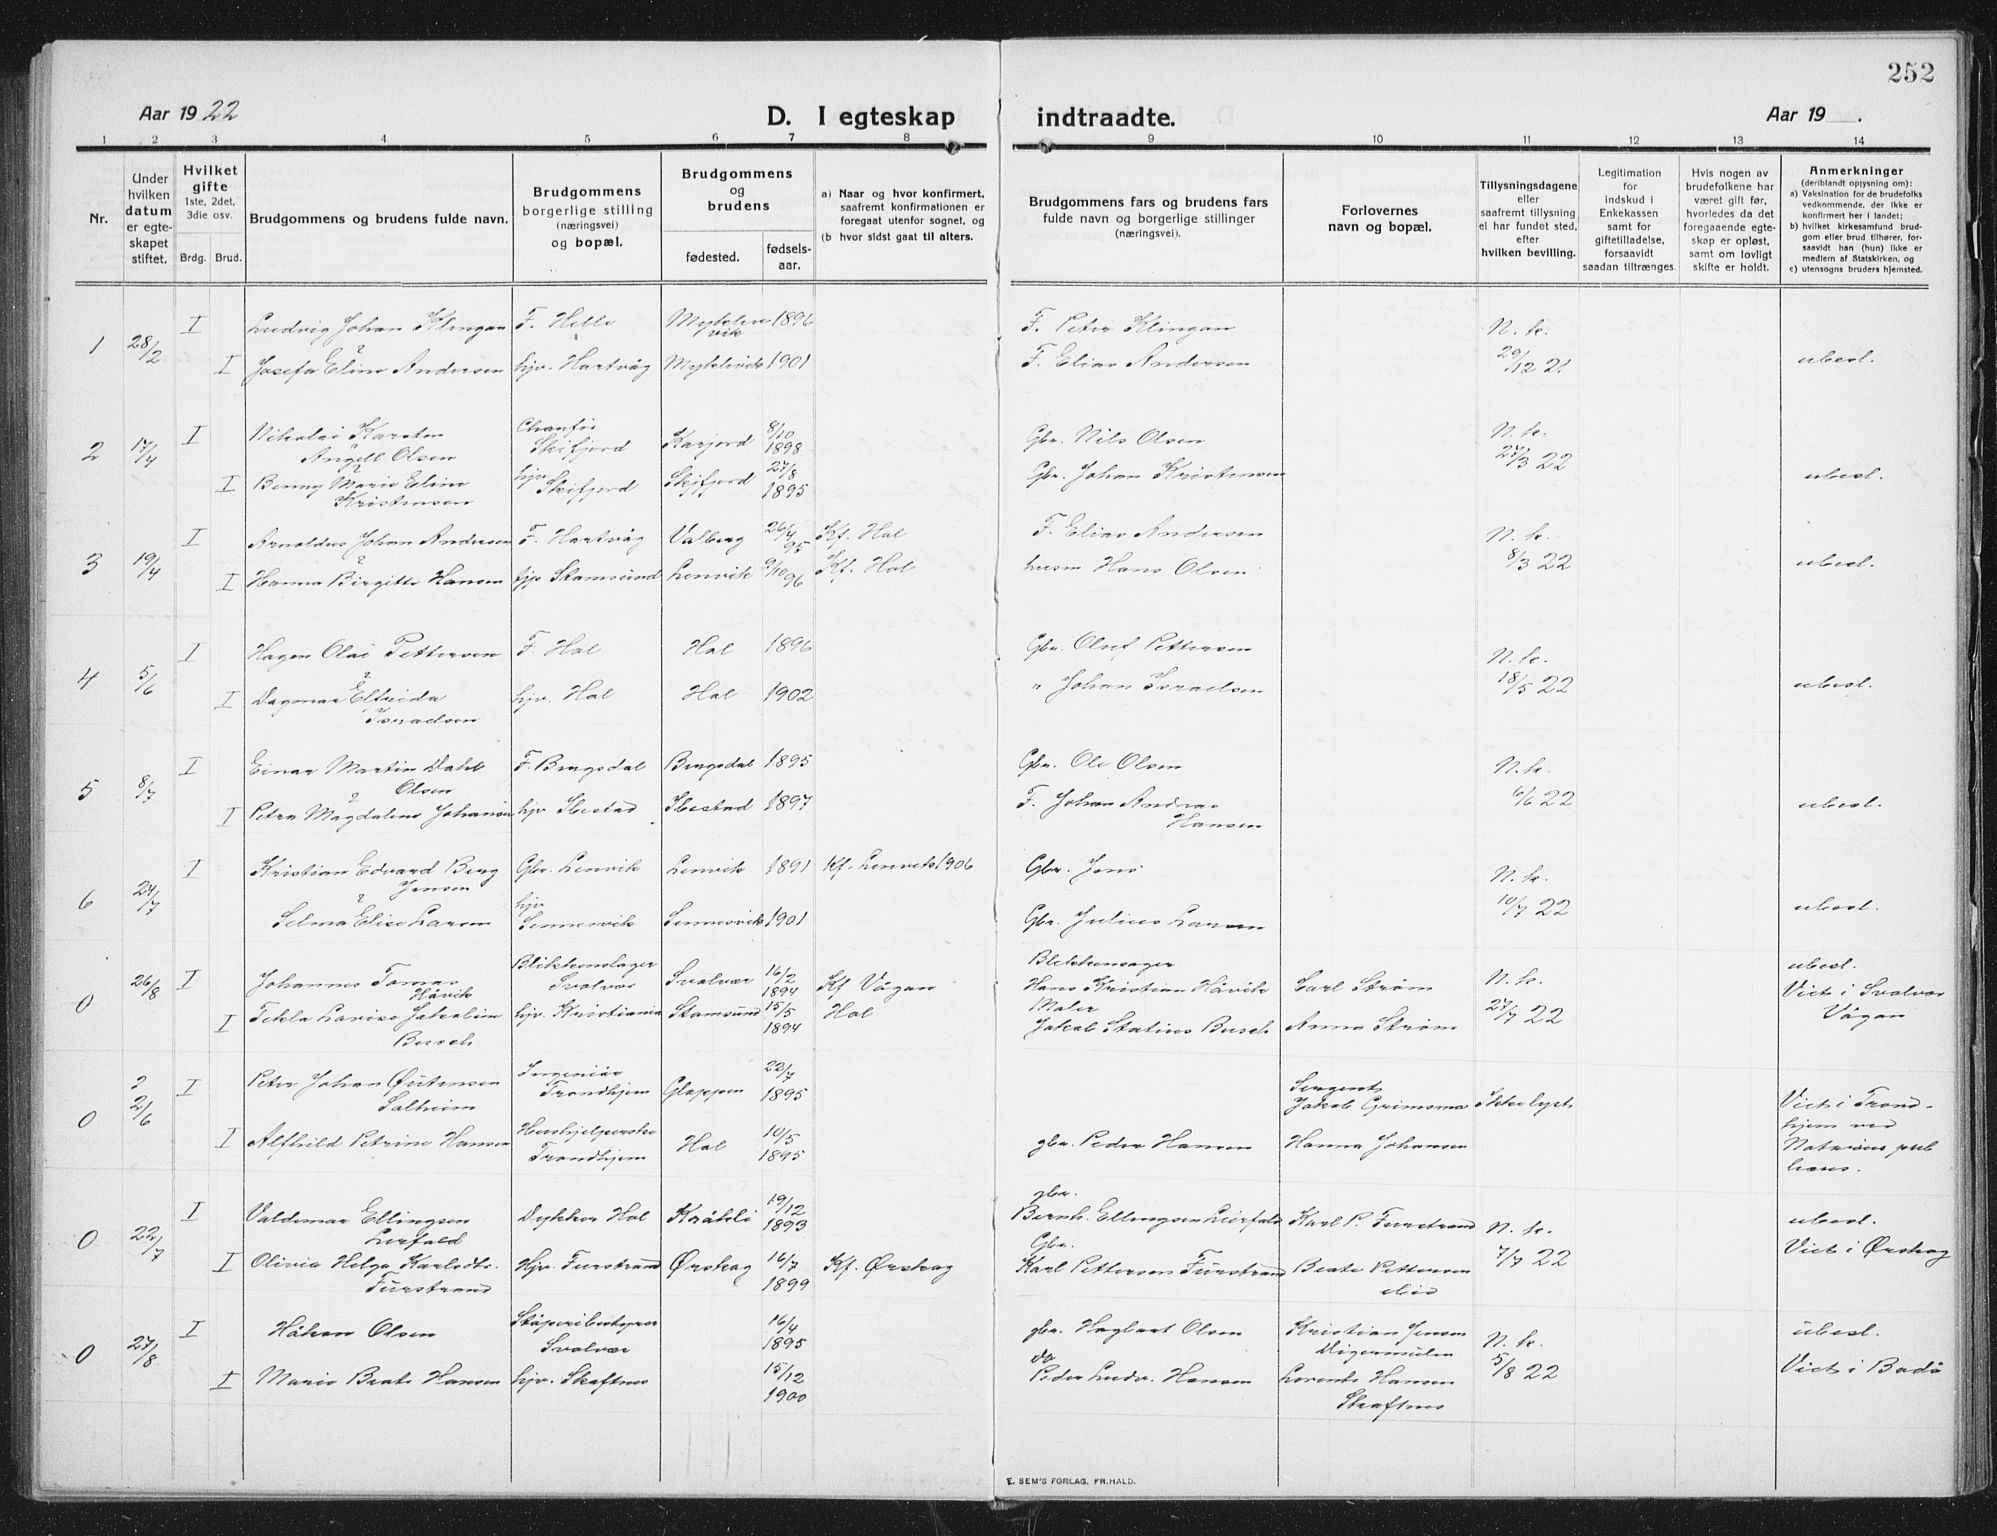 252
Aar 1922
D. I egteskap
indtraadte.
Aar 19 .
1 2 3 4 5 6 7 8 9 10 11 12 13 14
Nr.
Under
hvilken
datum
er egte-
skapet
stiftet.
Hvilket
gifte
1ste, 2det,
3die osv.
Brdg. Brud.
Brudgommens og brudens fulde navn.
Brudgommens
borgerlige stilling
(næringsvei)
og bopæl.
Brudgommens
og
brudens
fødested.
fødsels-
aar.
a) Naar og hvor konfirmert,
saafremt konfirmationen er
foregaat utenfor sognet, og
(b hvor sidst gaat til alters.
Brudgommens fars og brudens fars
fulde navn og borgerlige stillinger
(næringsvei).
Forlovernes
navn og bopæl.
Tillysningsdagene
eller
saafremt tillysning
ei har fundet sted,
efter
hvilken bevilling.
Legitimation
for
indskud i
Enkekassen
samt for
giftetilladelse,
forsaavidt
saadan tiltrænges
Hvis nogen av
brudefolkene har
været gift før,
hvorledes da det
foregaaende egte-
skap er opløst,
samt om lovligt
skifte er holdt.
Anmerkninger
(deriblandt opjysning om):
a) Vaksination for de brudefolks
vedkommende, der ikke er
konfirmert her i landet;
b) hvilket kirkesamfund brud-
gom eller brud tilhører, for-
saavidt han (hun) ikke er
medlem af Statskirken, og
c) utensogns bruders hjemsted.
1 28/2 I Ludvig Johan Klingan F. Helle Myklevik 1896 F. Peter Klingan N. k.
I Josefa Eline Andersen hjv. Hartvåg Myklevik 1901 F. Elias Andersen 29/12 21 ubesl.
2 17/4 I Nikolai Karsten
Angell Olsen Skifjord Karjord 8/10 1898 Gbr. Nils Olsen N. k.
I Benny Marie Eline
Kristensen hjv Skifjord Skjfjord 27/8 1895 Gbr. Johan Kristensen 27/3 22 ubesl.
3 19/4 I Arnoldus Johan Andersen F. Hartvåg Valberg 26/4 95 Kf. Hol F. Elias Andersen N. k.
I Hanna Birgitte Hansen hjv Stamsund Lenvik 9/10 96 Kf. Hol husm Hans Olsen 8/3 22 ubesl.
4 5/6 I Hagen Olai Pettersen F. Hol Hol 1896 Gbr. Oluf Pettersen N. k.
I Dagmar Elfrida
Israelsen hjv. Hol Hol 1902 " Johan Israelsen 18/5 22 ubesl.
5 8/7 I Einar Martin Dahl
Olsen F. Bergsdal Bergsdal 1895 Gbr. Ole Olsen N. k.
I Petra Magdalene Johansen hjv Ilestad Ilestad 1897 F. Johan Andreas
Hansen 6/6 22 ubesl.
6 27/7 I Kristian Edvard Berg
Jensen Gbr. Lenvik Lenvik 1891 Kf. Lenvik 1906 Gbr. Jens N. k.
I Selma Elise Larsen hjv
Sennesvik Sennesvik 1901 Gbr. Julius Larsen 10/7 22 ubesl.
0 26/8 I Johannes Tomas
Håvik Blikkenslager
Svolvær Svolvær 16/2 1894 Kf Vågan Blikkenslager
Hans Kristian Håvik Carl Strøm N. k. ubesl.
I Tekla Lovise Jakobine
Busch hjv. Kristiania Stamsund 15/5 1894 Hol Maler
Jakob Statius Busch Anna Strøm 27/7 22 Viet i Svolvær
Vågan
0 2/6 I Peter Johan Østensen
Solheim Ingeniør
Trondhjem Glappen 22/7 1895 Sergent
Jakob Grimsmo Ikke lyst Viet i Trond-
I Alfhild Petrine Hansen
Trondhjem Hol 10/5 1895 gbr. Peder Hansen Hanna Johansen hjem ved
Notarius pub
licus.
0 22/7 I Valdemar Ellingsen
Leirfald Dykker Hol Kråkli 19/12 1893 gbr.
Bernh. Ellingsen Leirfald Karl P. Furstrand N. k. ubesl.
I Olivia Helga Karlsdt.
Furstrand Hjv. Furstrand Ørskog 16/7 1899 Kf. Ørskog Gbr.
Karl Pettersen Furstrand Beate Pettersen 7/7 22 Viet i Ørskog
0 27/8 I Håkon Olsen Støperibestyrer
Svolvær 16/4 1895 gbr. Hagbart Olsen Kristian Jensen
Digermulen N. k. ubesl.
I Marie Beate Hansen hjv. Skaftnes 15/12 1900 do
Peder Ludv. Hansen Lorents Hansen
Skaftnes 5/8 22 Viet i Bodø
E. SEM'S FORLAG, FR.HALD.